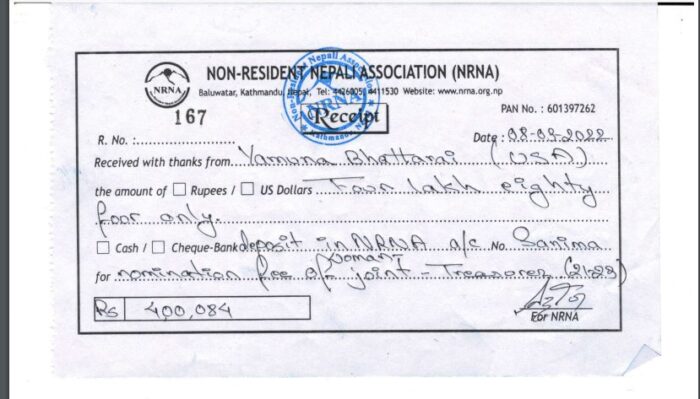 NON-RESIDENT NEPALI ASSOCIATION (NRNA)
NRNA
Baluwatar, Kathmandu, Nepal, Tel: 4426005, 4411530 Website: www.nrna.org.np
167
Receipt
PAN No. : 601397262
R. No. :
Date : 08-03-2022
Received with thanks from Yamuna Bhattarai (USA)
the amount of Rupees / US Dollars Four lakh eighty
four only.
Cash / Cheque-Bank deposit in NRNA a/c No. Sanima
for nomination fee of woman joint - Treasurer (21-23)
Rs 400,084
For NRNA